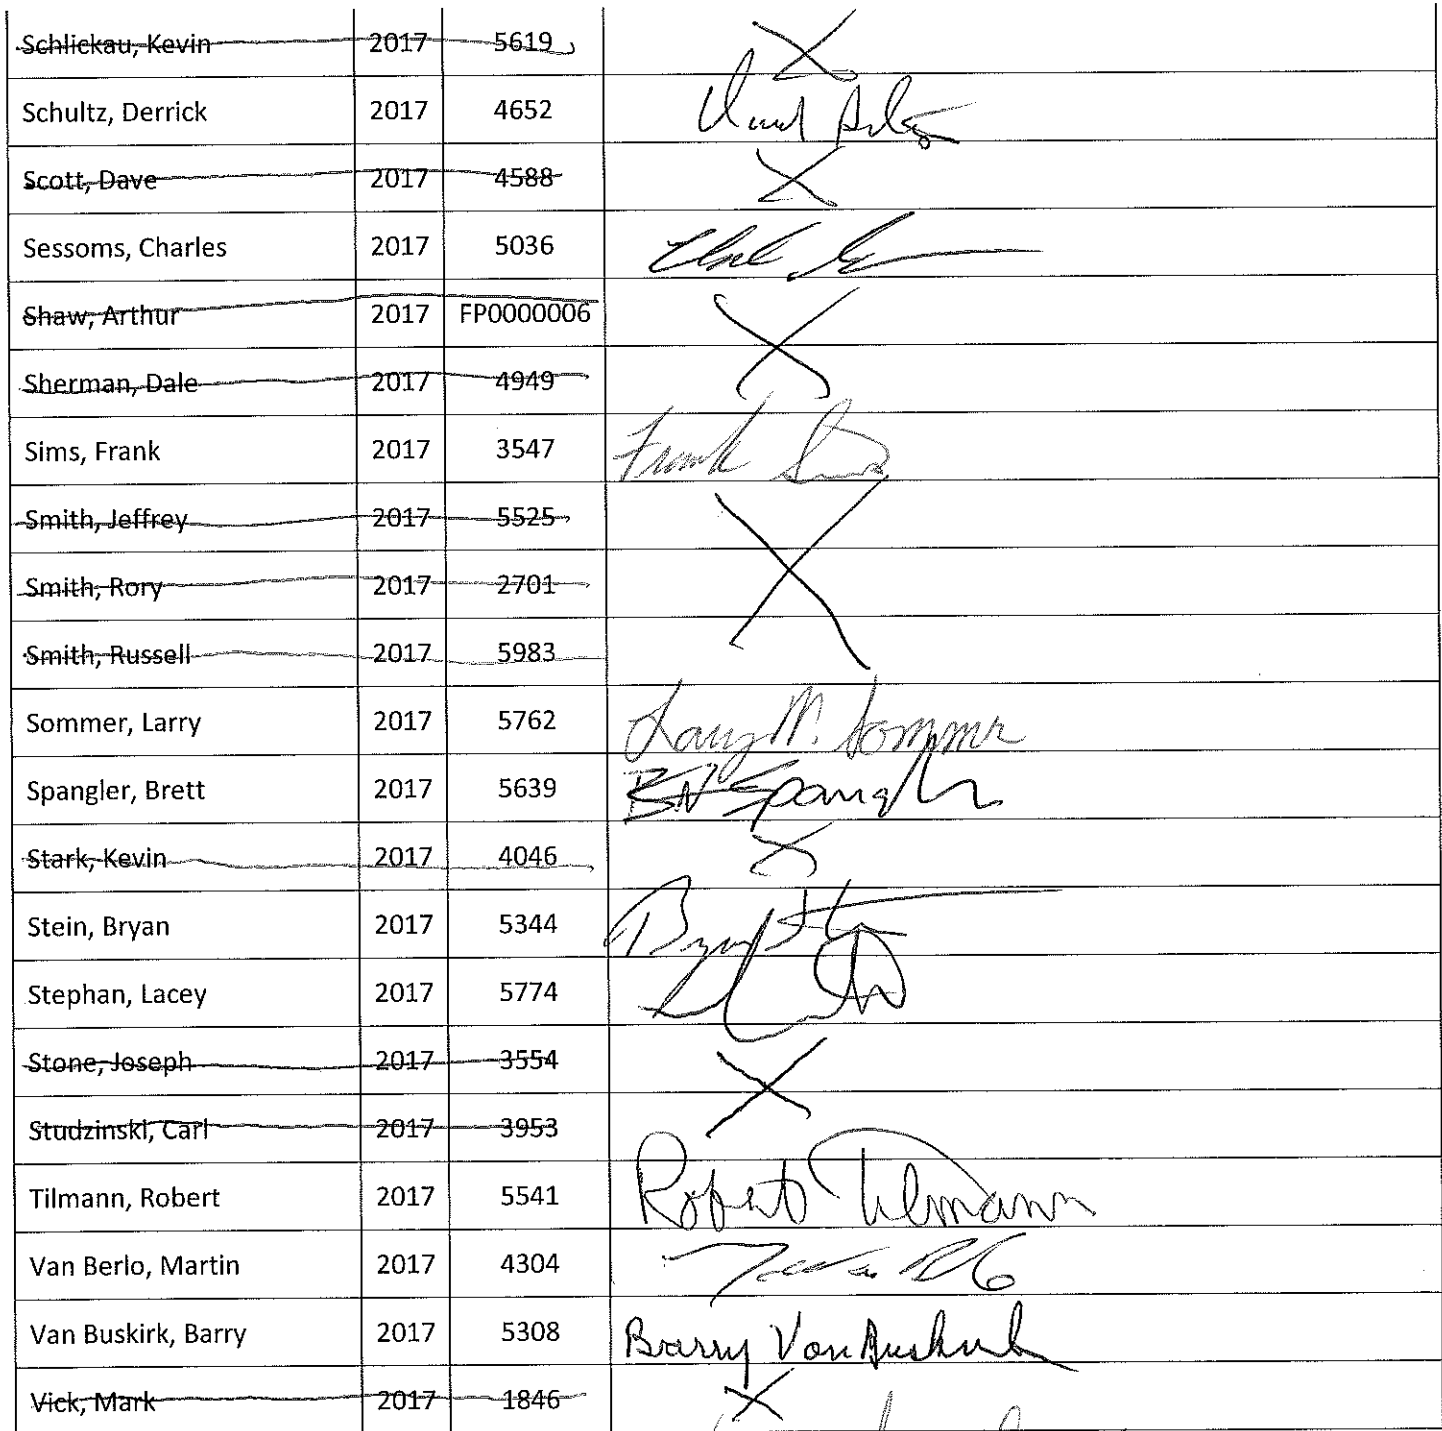 Schlickau, Kevin 2017 5619 X
Schultz, Derrick 2017 4652
Scott, Dave 2017 4588 X
Sessoms, Charles 2017 5036
Shaw, Arthur 2017 FP0000006 X
Sherman, Dale 2017 4949
Sims, Frank 2017 3547 Frank Sims
Smith, Jeffrey 2017 5525 X
Smith, Rory 2017 2701
Smith, Russell 2017 5983
Sommer, Larry 2017 5762 Larry M. Sommer
Spangler, Brett 2017 5639 Spangler
Stark, Kevin 2017 4046 X
Stein, Bryan 2017 5344
Stephan, Lacey 2017 5774
Stone, Joseph 2017 3554 X
Studzinski, Carl 2017 3953
Tilmann, Robert 2017 5541 Robert Tilmann
Van Berlo, Martin 2017 4304
Van Buskirk, Barry 2017 5308 Barry Van Buskirk
Vick, Mark 2017 1846 X